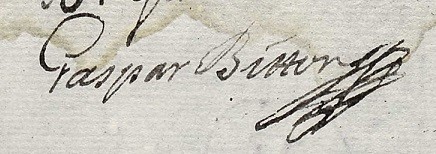 Gaspar Bitton